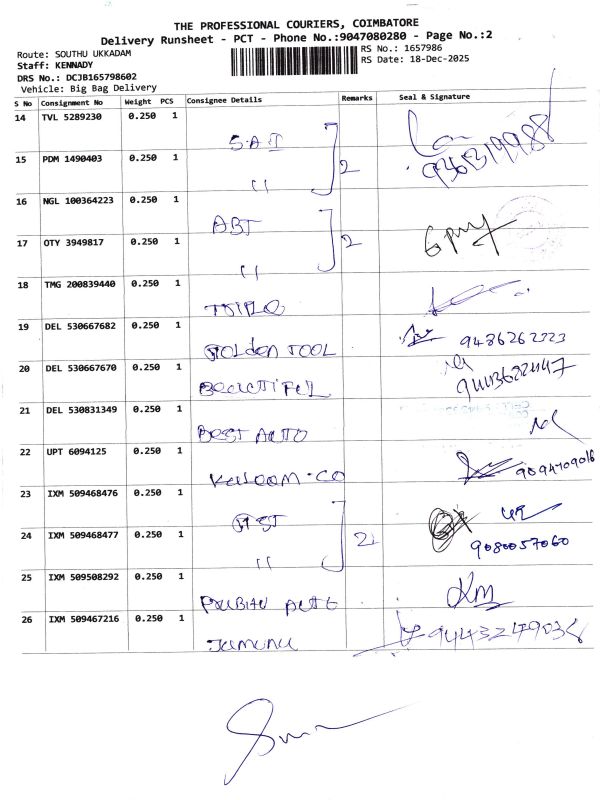 THE PROFESSIONAL COURIERS, COIMBATORE
Delivery Runsheet - PCT - Phone No.:9047080280 - Page No.:2
Route: SOUTHU UKKADAM
RS No.: 1657986
Staff: KENNADY
RS Date: 18-Dec-2025
DRS No.: DCJB165798602
Vehicle: Big Bag Delivery
S No Consignment No Weight PCS Consignee Details Remarks Seal & Signature
14 TVL 5289230 0.250 1
S.A.I
15 PDM 1490403 0.250 1 2
16 NGL 100364223 0.250 1
ABT
17 OTY 3949817 0.250 1 2
18 TMG 200839440 0.250 1
19 DEL 530667682 0.250 1
Golden TOOL
20 DEL 530667670 0.250 1
21 DEL 530831349 0.250 1
BEST AUTO
22 UPT 6094125 0.250 1
9094709016
23 IXM 509468476 0.250 1
24 IXM 509468477 0.250 1
9080057060
25 IXM 509508292 0.250 1
26 IXM 509467216 0.250 1
Jamuna